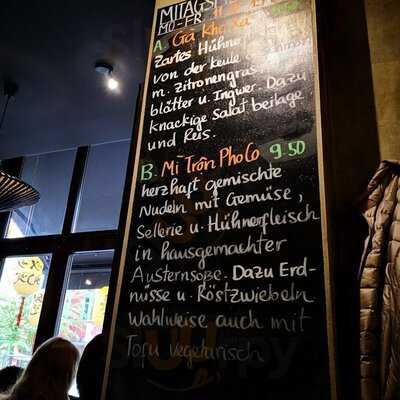 MITAGS
MO-FR. 11
A. Gà Kho Xả 9.50
Zartes Hühner
von der Keule
m. Zitronengras
blätter u. Ingwer. Dazu
knackige Salatbeilage
und Reis.
B. Mì Trôn Pho Co 9.50
herzhaft gemischte
Nudeln mit Gemüse,
Sellerie u. Hühnerfleisch
in hausgemachter
Austernsoße. Dazu Erd-
nüsse u. Röstzwiebeln
Wahlweise auch mit
Tofu vegetarisch